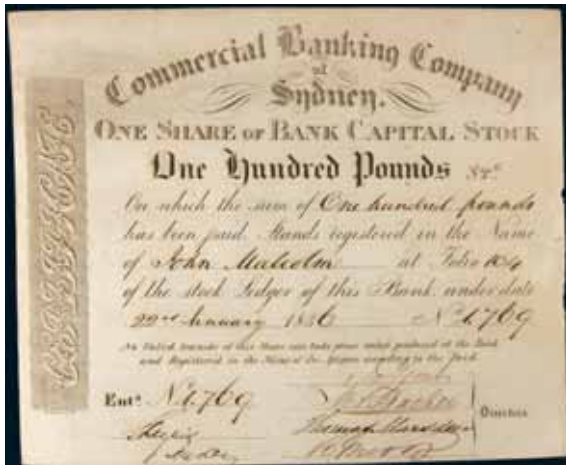 Commercial Banking Company
of
Sydney.
ONE SHARE OF BANK CAPITAL STOCK
One Hundred Pounds Stg.
On which the sum of One hundred pounds
has been paid. Stands registered in the Name
of John Malcolm at Folio 104
of the stock Ledger of this Bank under date
22nd January 1836 No. 1769
No Valid transfer of this Share can take place unless produced at the Bank
and Registered in the Name of the Assignee according to the Deed.
Entd. No. 1769
Directors
Thomas